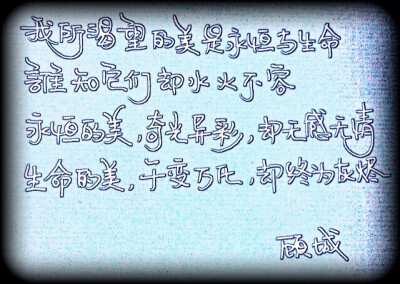 我所渴望的美是永恒与生命
誰知它们却水火不容
永恒的美,奇光异彩,却无感无情
生命的美,千变万化,却终为灰烬
顾城